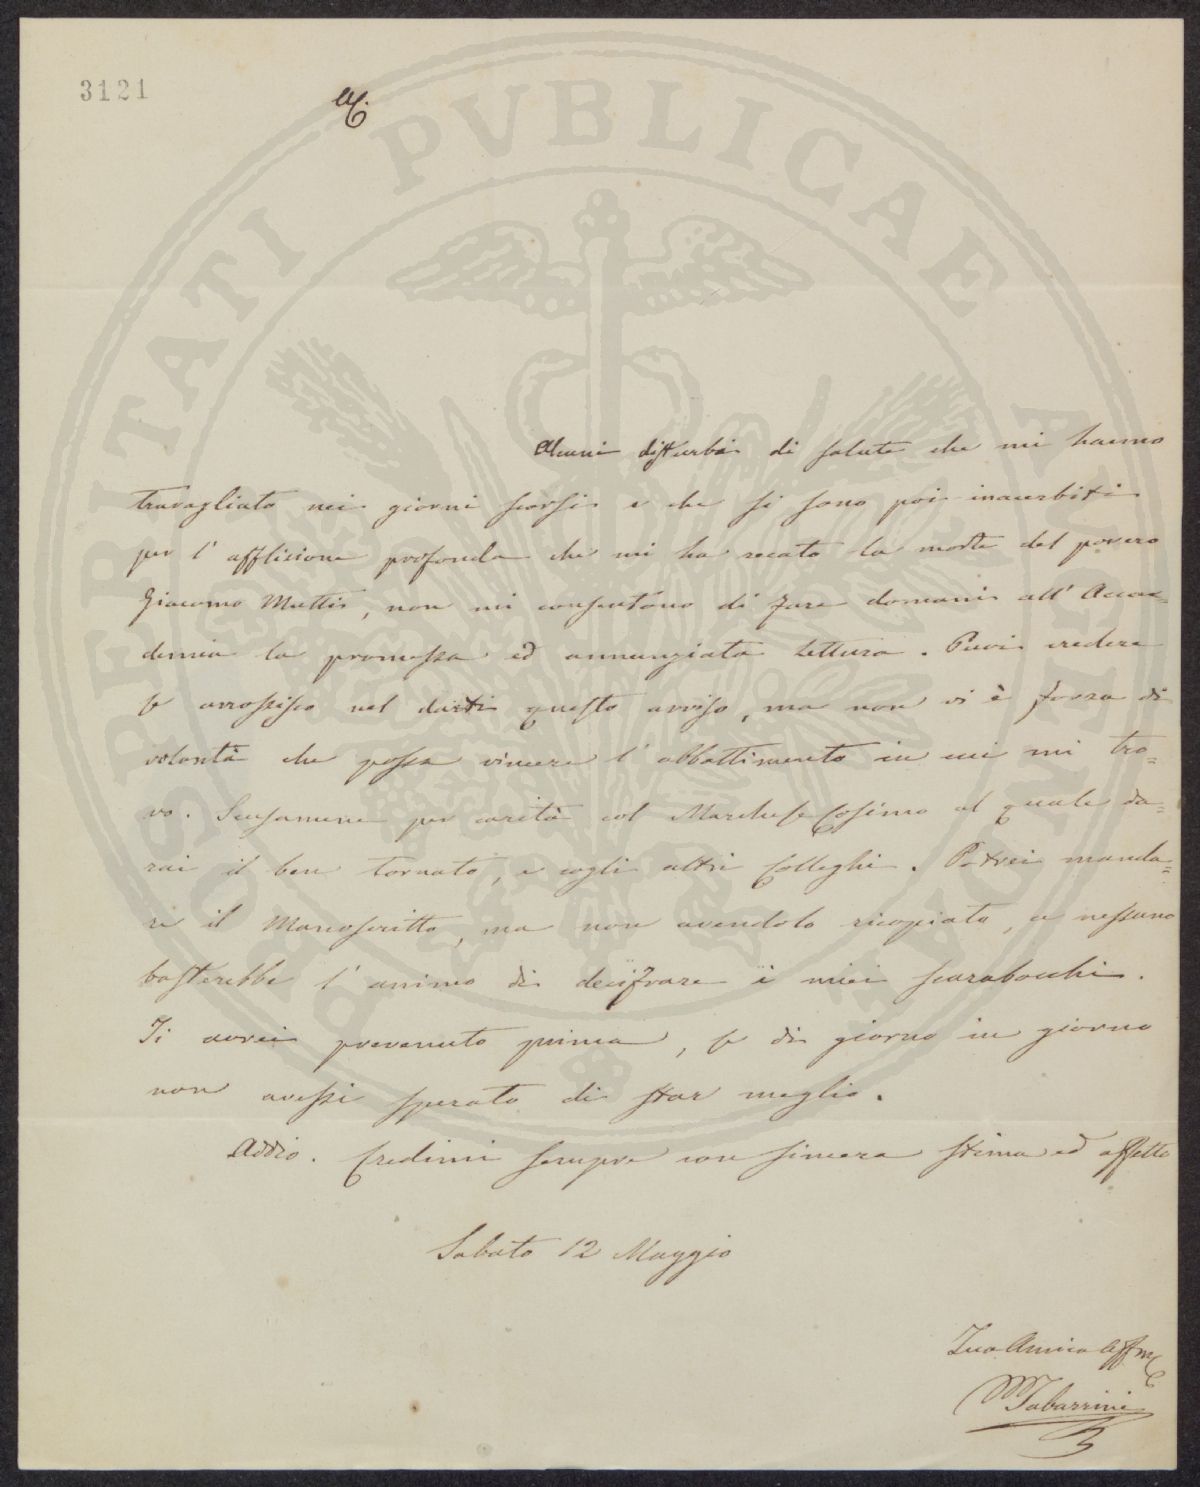 3121
C.
PROSPERITATI PVBLICAE AVGENDAE
Alcuni disturbi di salute che mi hanno
travagliato nei giorni scorsi e che si sono poi inacerbiti
per l'afflizione profonda che mi ha recato la morte del povero
Giacomo Mattis, non mi consentono di fare domani all'Acca=
demia la promessa ed annunziata lettura. Puoi credere
se arrossisco nel darti questo avviso, ma non vi è forza di
volontà che possa vincere l'abbattimento in cui mi tro=
vo. Scusamene per carità col Marchese Cosimo al quale da=
rai il ben tornato, e cogli altri Colleghi. Potrei manda=
re il Manoscritto, ma non avendolo ricopiato, a nessuno
basterebbe l'animo di decifrare i miei scarabocchi.
Ti avrei prevenuto prima, se di giorno in giorno
non avessi sperato di star meglio.
Addio. Credimi sempre con sincera stima ed affetto
Sabato 12 Maggio
Tuo Amico Affmo
M Tabarrini